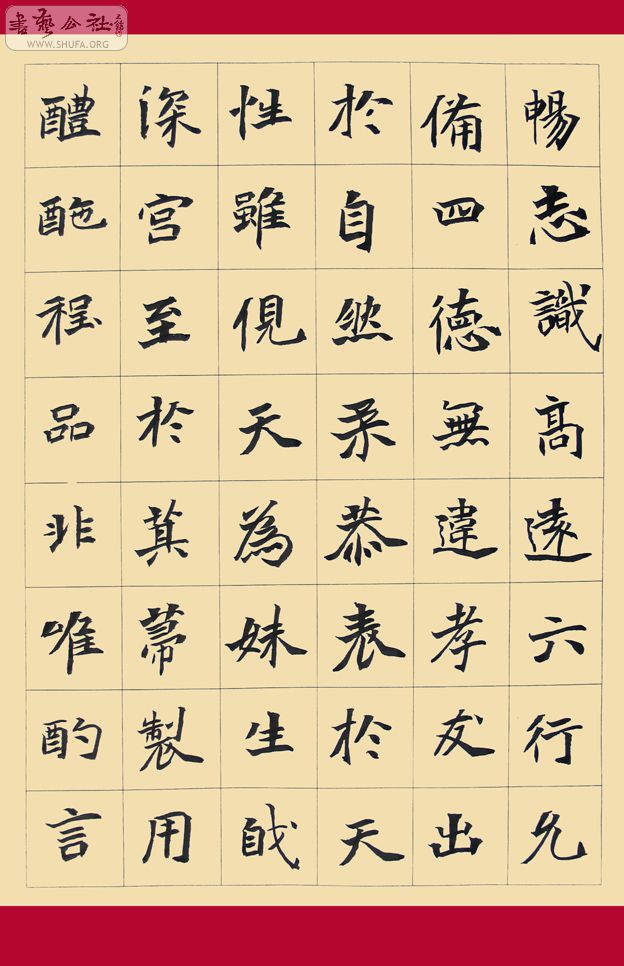 書藝公社
WWW.SHUFA.ORG
暢志識高遠六行允
備四德無違孝友出
於自然柔恭表於天
性雖俔天為妹生
深宮至於萁菷製用
醴酏程品非唯酌言